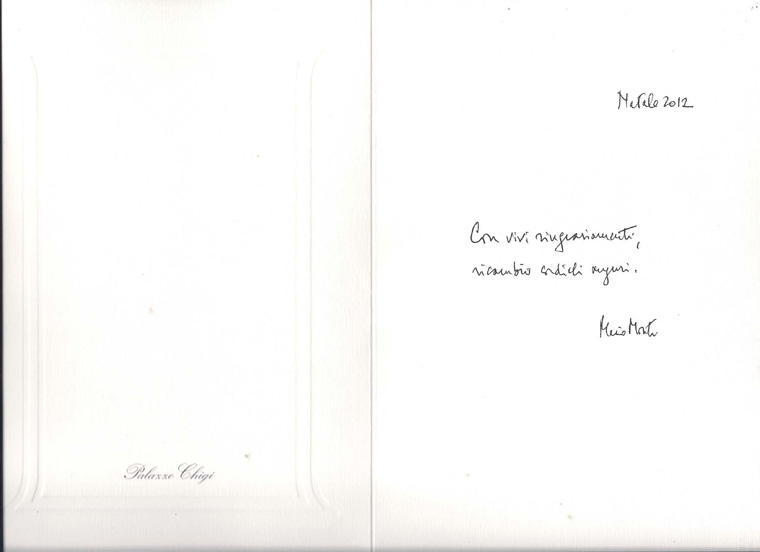 Palazzo Chigi
Natale 2012
Con vivi ringraziamenti,
ricambio cordiali auguri.
Mario Monti